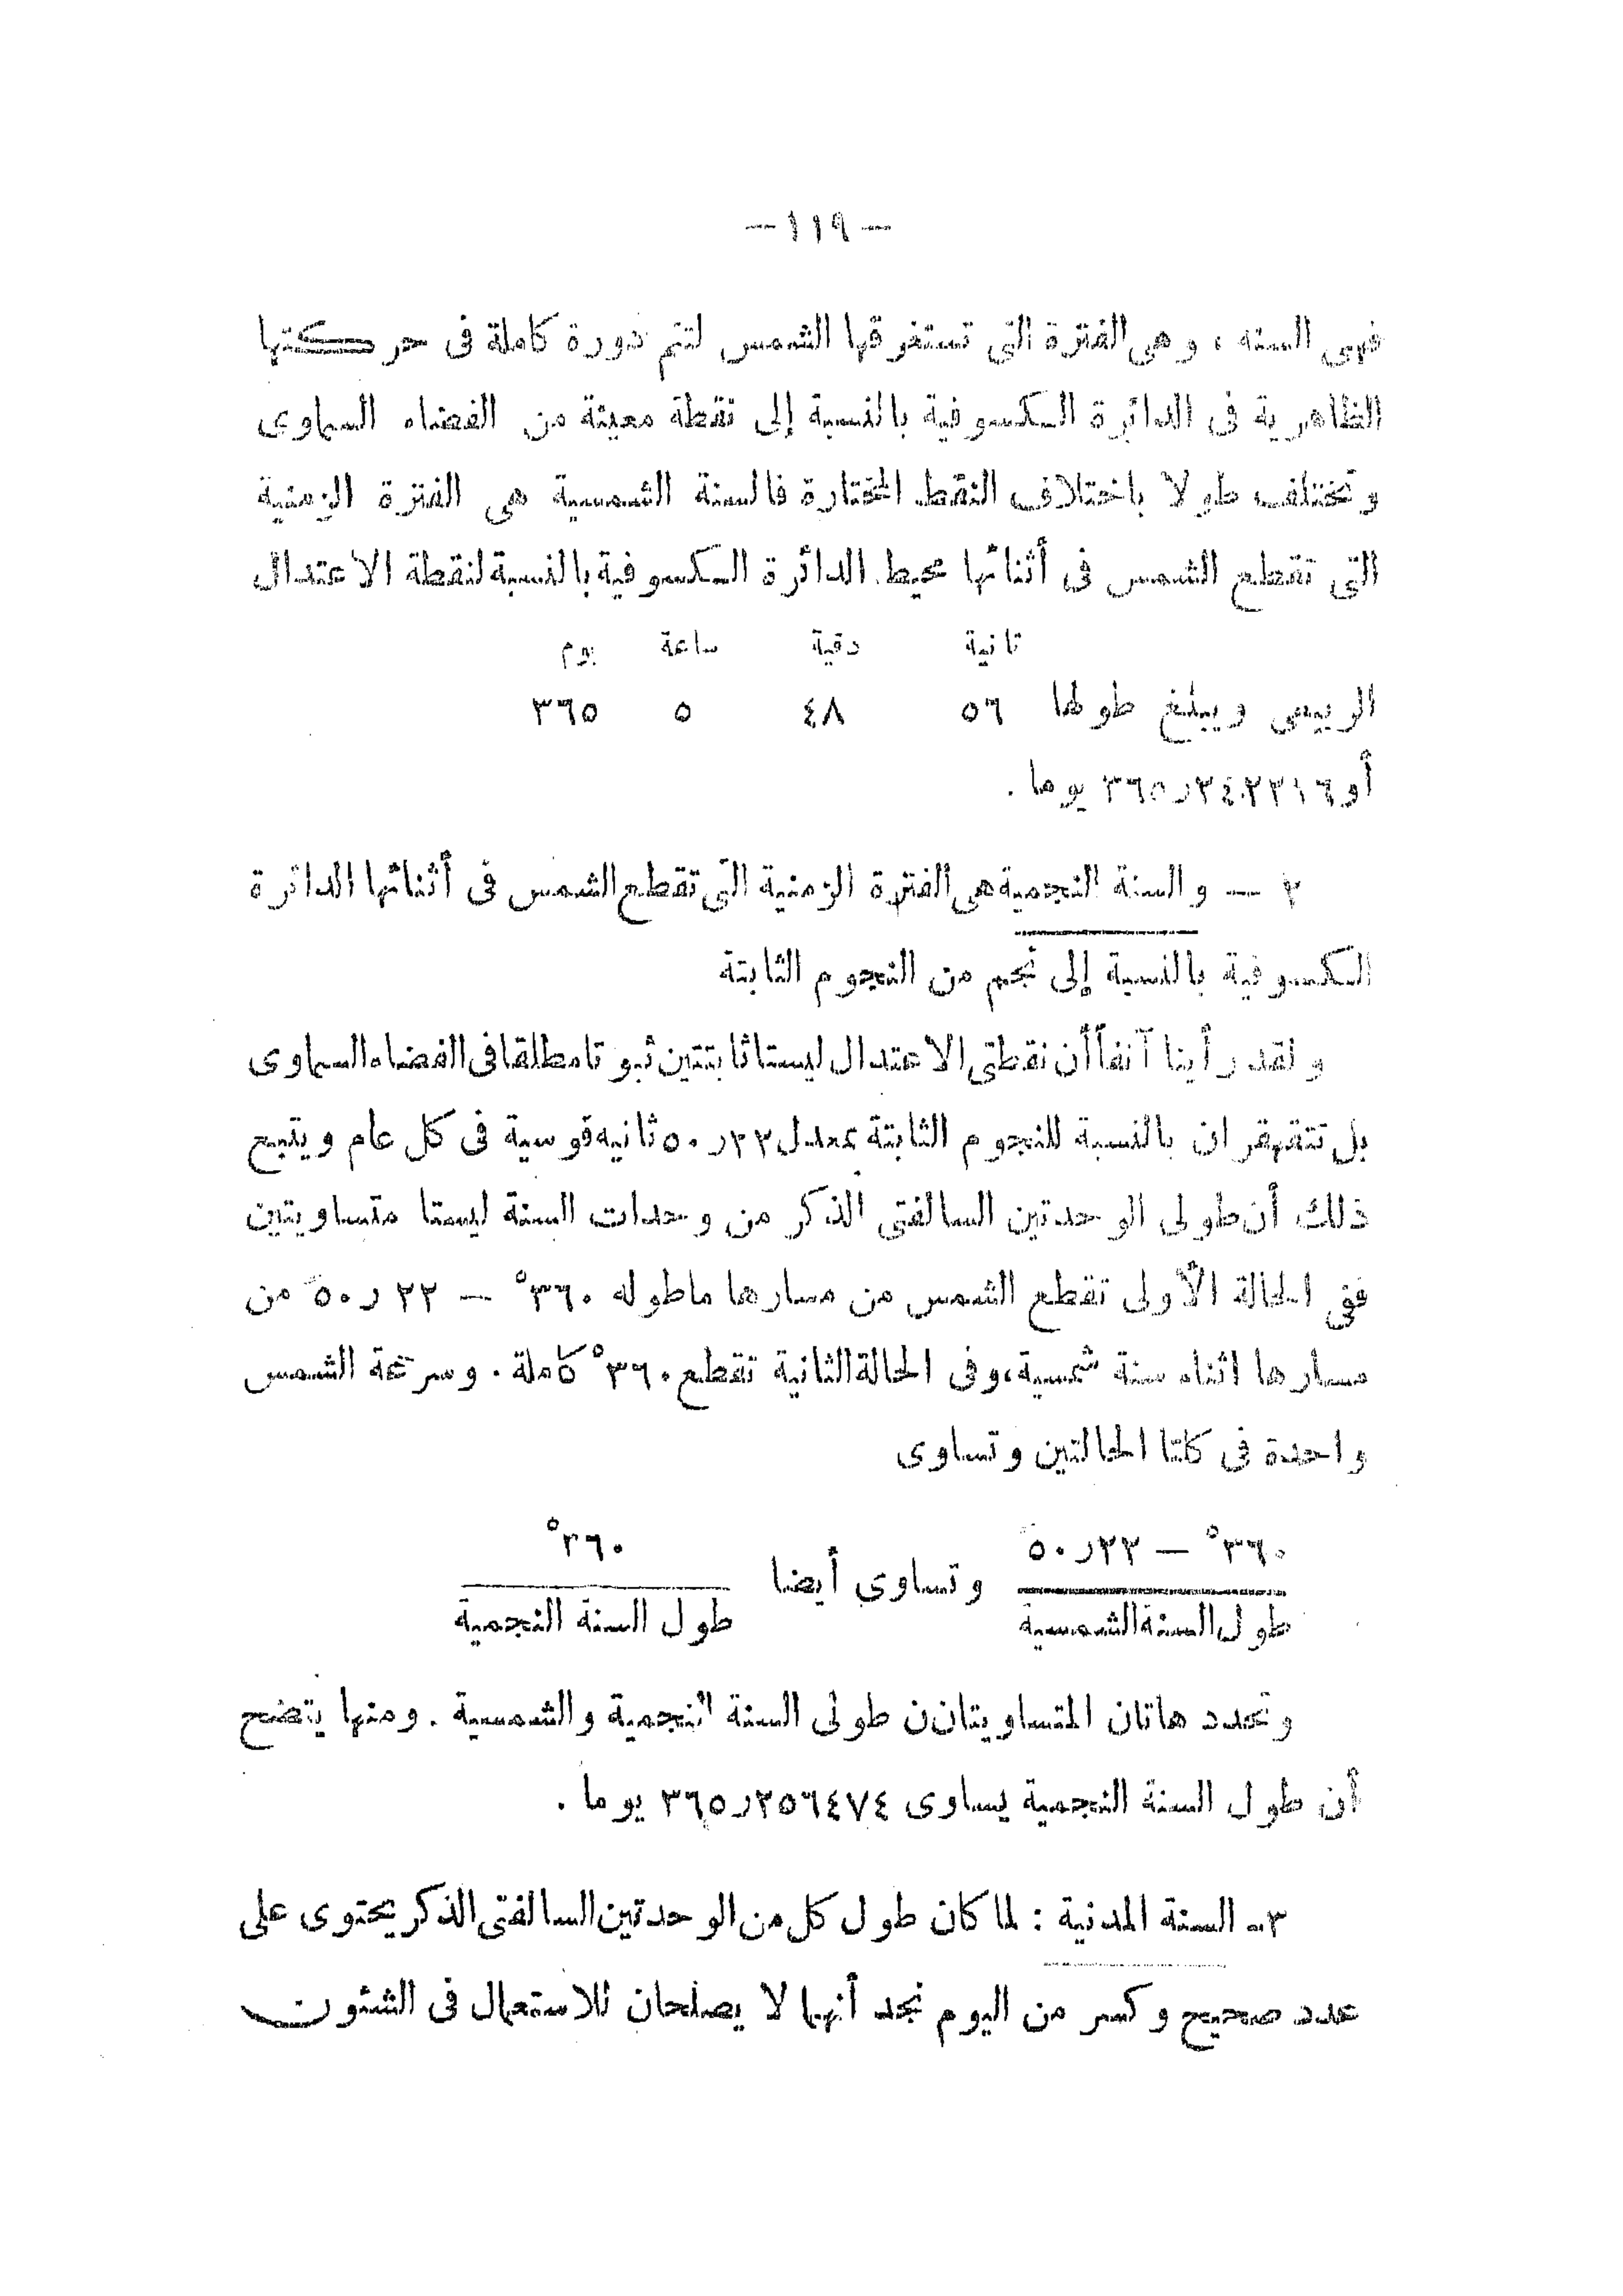 — ١١٩ —
فهى السنه ، وهى الفترة التى تستغرقها الشمس لتتم دورة كاملة فى حركتها
الظاهرية فى الدائرة الكسوفية بالنسبة إلى نقطة معينة من الفضاء السماوى
وتختلف طولا باختلاف النقط المختارة فالسنة الشمسية هى الفترة الزمنية
التى تقطع الشمس فى أثنائها محيط الدائرة الكسوفية بالنسبة لنقطة الاعتدال
ثانية دقية ساعة يوم
الربيعى ويبلغ طولها ٥٦ ٤٨ ٥ ٣٦٥
أو ٣٦٥٫٢٤٢٢١٦ يوما .
٢ — والسنة النجمية هى الفترة الزمنية التى تقطع الشمس فى أثنائها الدائرة
الكسوفية بالنسبة إلى نجم من النجوم الثابتة
ولقد رأينا آنفاً أن نقطتى الاعتدال ليستا ثابتتين ثبوتا مطلقا فى الفضاء السماوى
بل تتقهقران بالنسبة للنجوم الثابتة بمعدل ٥٠٫٢٢ ثانيه قوسية فى كل عام ويتبع
ذلك أن طولى الوحدتين السالفتى الذكر من وحدات السنة ليستا متساويتين
ففى الحالة الأولى تقطع الشمس من مسارها ما طوله ٣٦٠° — ٥٠٫٢٢ً من
مسارها اثناء سنة شمسية، وفى الحالة الثانية تقطع ٣٦٠° كاملة . وسرعة الشمس
واحدة فى كلتا الحالتين وتساوى
٣٦٠° — ٥٠٫٢٢ً
طول السنة الشمسية
وتساوى أيضا
٣٦٠°
طول السنة النجمية
وتحدد هاتان المتساويتان ن طولى السنة النجمية والشمسية . ومنها يتضح
أن طول السنة النجمية يساوى ٣٦٥٫٢٥٦٤٧٤ يوما .
٣ـ السنة المدنية : لما كان طول كل من الوحدتين السالفتى الذكر يحتوى على
عدد صحيح وكسر من اليوم نجد أنهما لا يصلحان للاستعمال فى الشئون